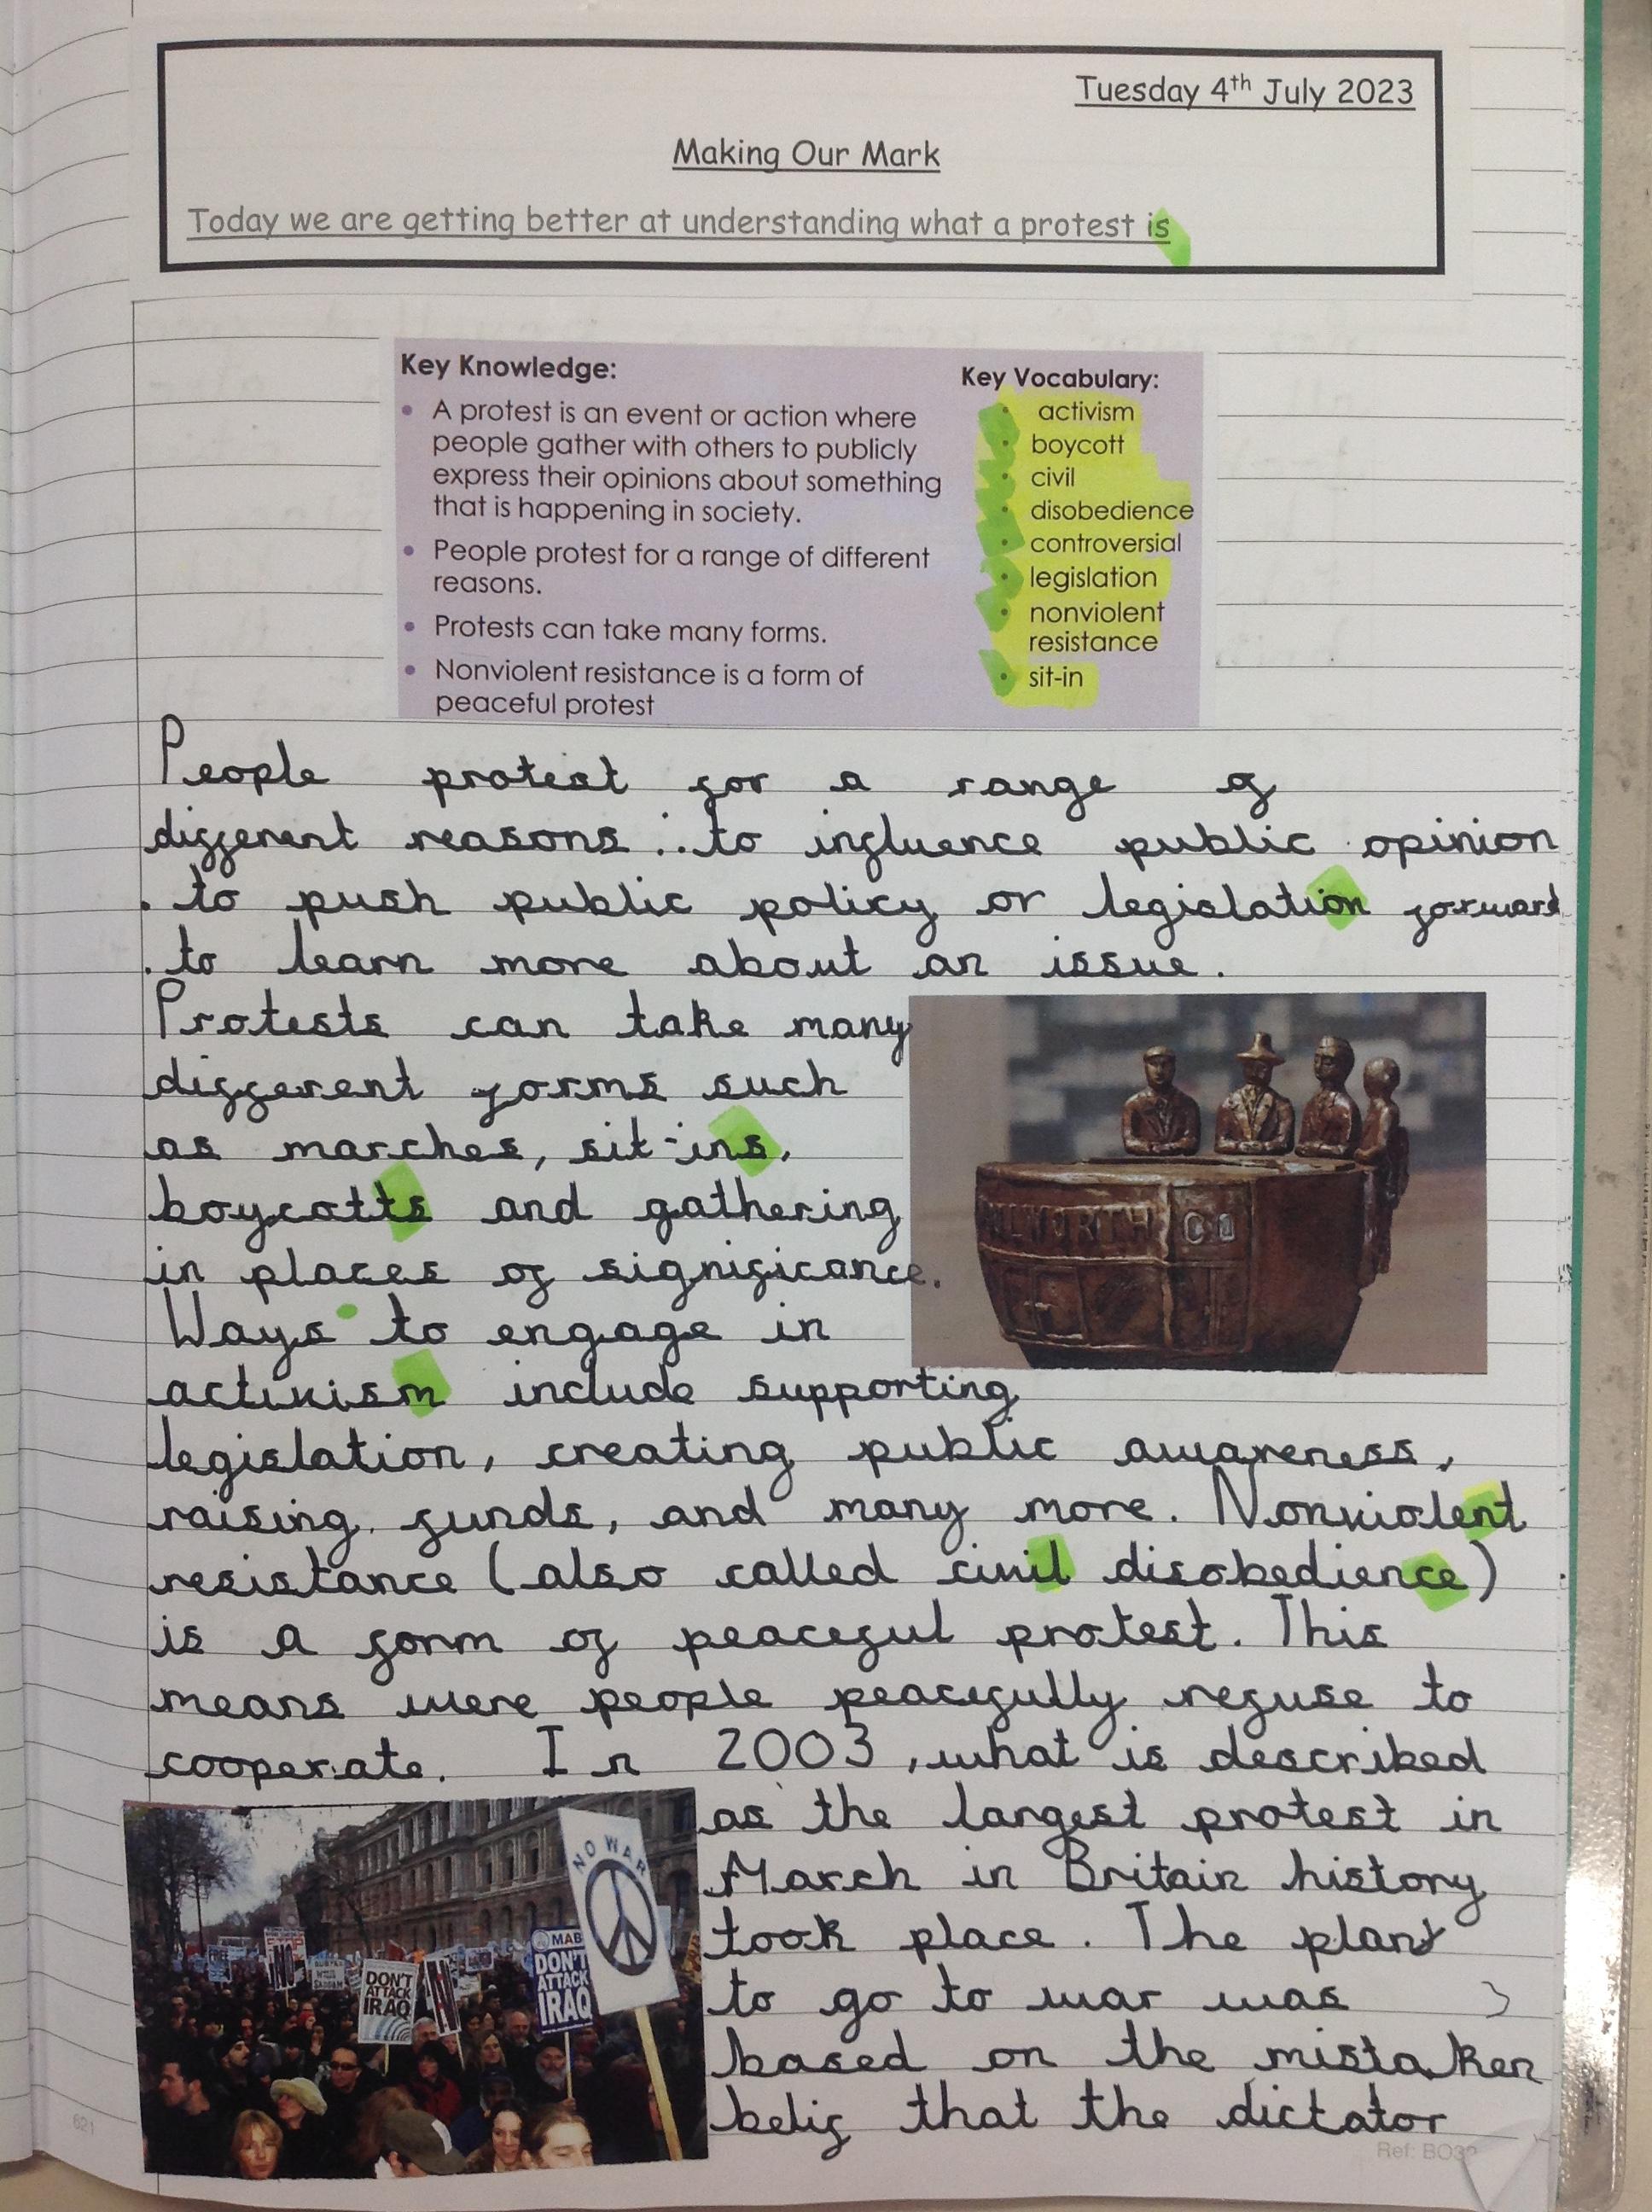 Tuesday 4th July 2023
Making Our Mark
Today we are getting better at understanding what a protest is
Key Knowledge:
• A protest is an event or action where
people gather with others to publicly
express their opinions about something
that is happening in society.
• People protest for a range of different
reasons.
• Protests can take many forms.
• Nonviolent resistance is a form of
peaceful protest
Key Vocabulary:
• activism
• boycott
• civil
• disobedience
• controversial
• legislation
• nonviolent
resistance
• sit-in
People protest for a range of
different reasons :. to influence public opinion
. to push public policy or legislation forward
. to learn more about an issue.
Protests can take many
different forms such
as marches, sit-ins,
boycotts and gathering
in places of significance.
Ways to engage in
activism include supporting
legislation, creating public awareness,
raising funds, and many more. Nonviolent
resistance (also called civil disobedience)
is a form of peaceful protest. This
means were people peacefully refuse to
cooperate. In 2003, what is described
as the largest protest in
March in Britain history
took place. The plan
to go to war was
based on the mistaken
belif that the dictator
NO WAR
DON'T
ATTACK
IRAQ
MAB
DON'T
ATTACK
IRAQ
621